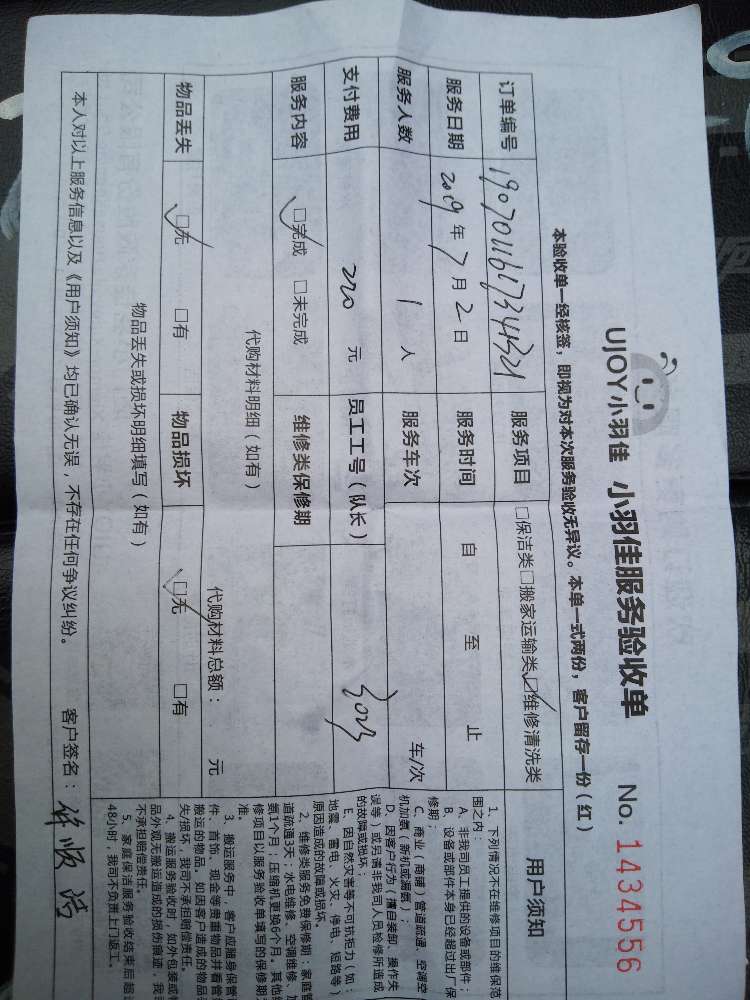 UJOY小羽佳 小羽佳服务验收单 No. 1434556
本验收单一经核签，即视为对本次服务验收无异议。本单一式两份，客户留存一份（红）
订单编号 服务项目 □保洁类□搬家运输类☑维修清洗类
服务日期 2019年7月2日 服务时间 自 至 止
服务人数 1 人 服务车次 车/次
支付费用 220 元 员工工号（队长）
服务内容 ☑完成 □未完成 维修类保修期
代购材料明细（如有）
代购材料总额： 元
物品丢失 ☑无 □有 物品损坏 ☑无 □有
物品丢失或损坏明细填写（如有）
本人对以上服务信息以及《用户须知》均已确认无误，不存在任何争议纠纷。 客户签名：
用户须知
1、下列情况不在维修项目的维保范
围之内：
A、非我司员工提供的设备或部件；
B、设备或部件本身已经超过出厂保
修期；
C、商业（商铺）管道疏通、空调空
机加氨（新机或漏氨）；
D、因客户行为（擅自装卸、操作失
误等）或另请非我司人员检修所造成
的故障或损坏；
E、因自然灾害等不可抗拒力（如：
地震、雷电、火灾、停电、短路等）
原因造成的故障或损坏。
2、维修类服务免费保修期：家庭管
道疏通3天；水电维修、空调维修、加
氨1个月；压缩机更换6个月。其他维
修项目以服务验收单填写的保修期为
准。
3、搬运服务中，客户应随身保管
件、首饰、现金等贵重物品并看管
搬运的物品。如因客户造成的物品
失/损坏，我司不承担赔偿责任。
4、搬运服务验收时，如外包装或物
品外观无搬运造成的损伤痕迹，我司
不承担赔偿责任。
5、家庭保洁服务验收结束后超过
48小时，我司不负责上门返工。